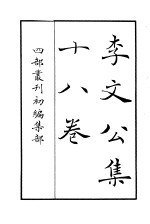 李文公集
十八卷
四部叢刊初編集部